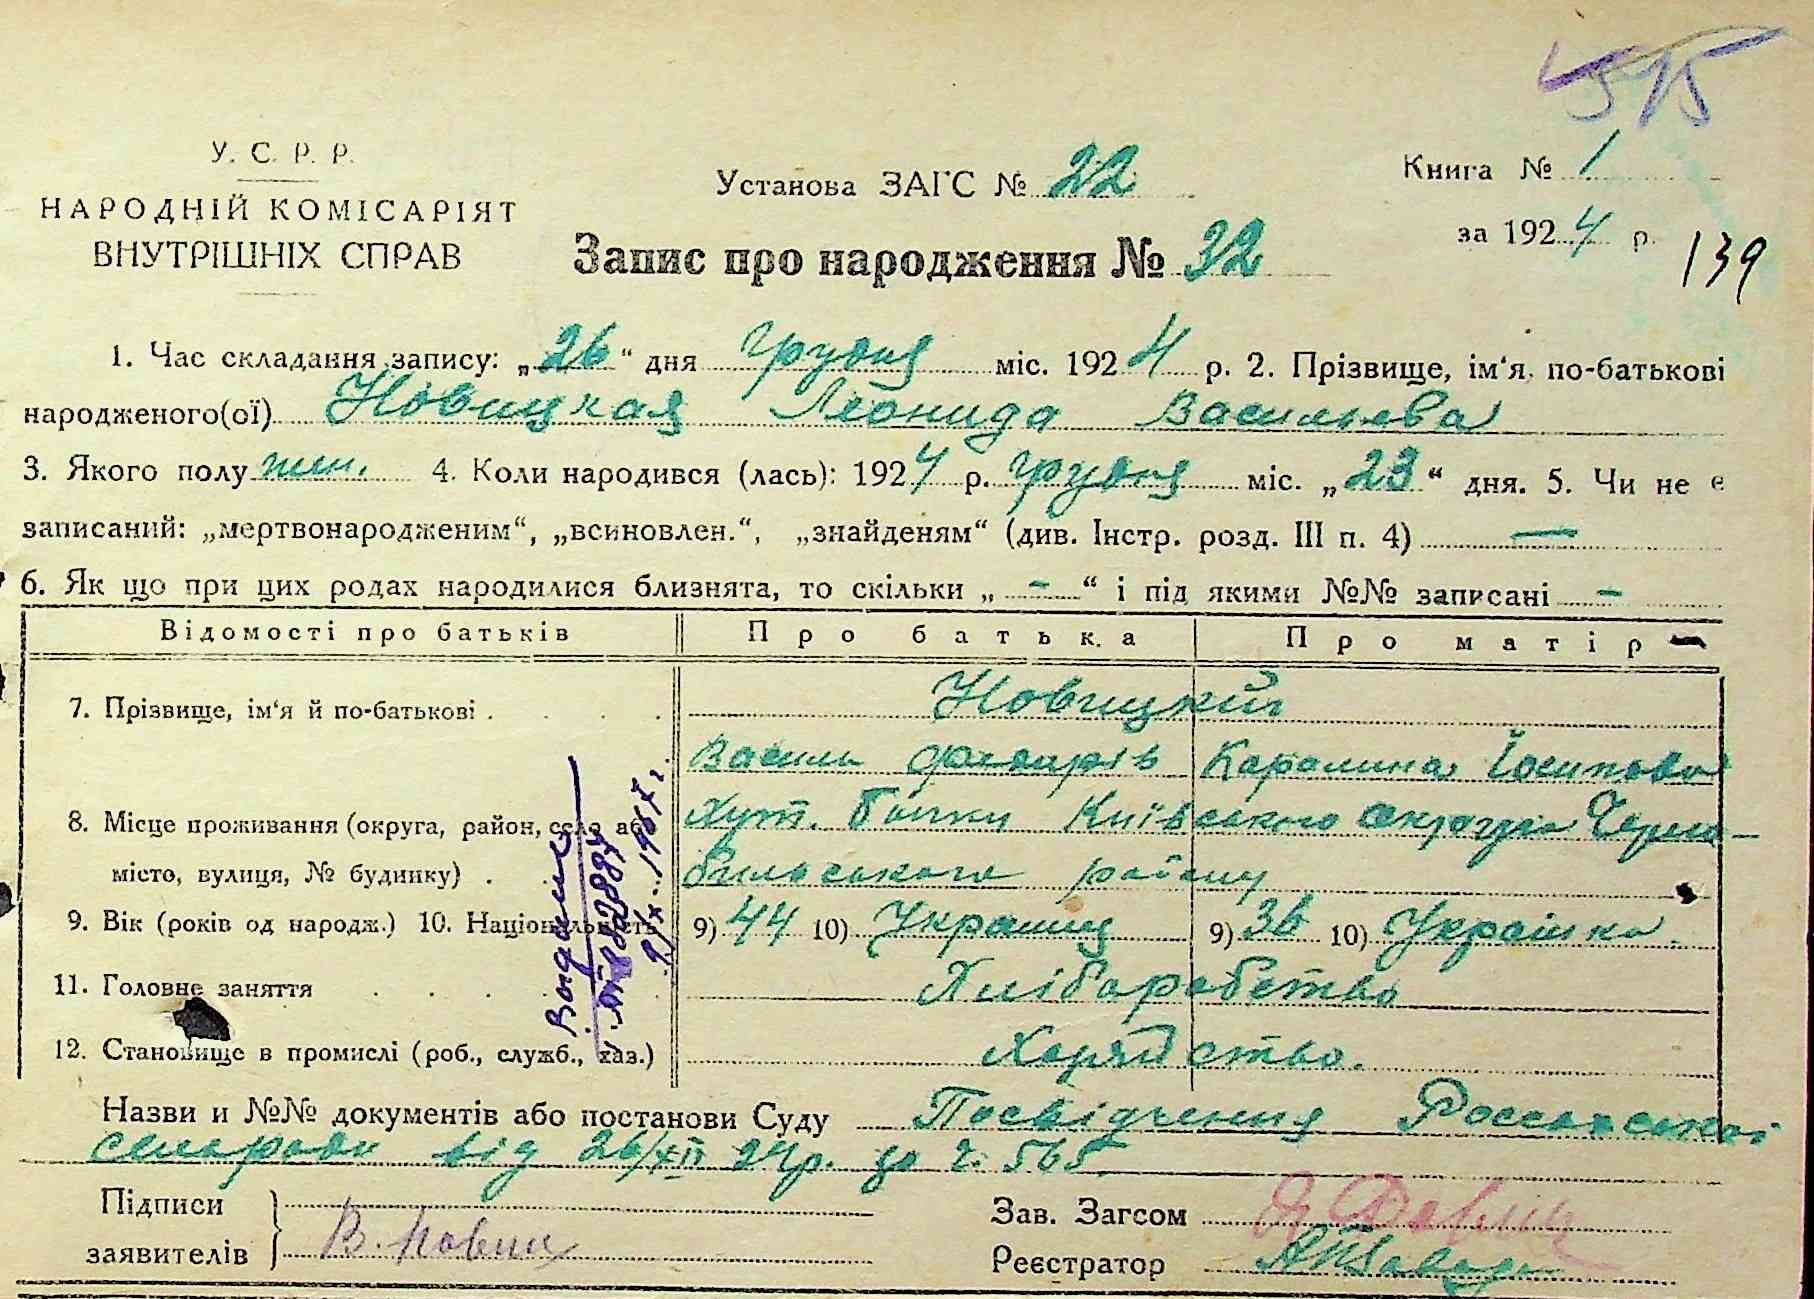 515
У. С. Р. Р.
НАРОДНІЙ КОМІСАРІЯТ
ВНУТРІШНІХ СПРАВ
Установа ЗАГС № 22
Книга № 1
за 1924 р.
139
Запис про народження № 32
1. Час складання запису: „26“ дня грудня міс. 1924 р. 2. Прізвище, ім‘я, по-батькові
народженого(ої) Новицкая Леонида Васильева
3. Якого полу жен. 4. Коли народився (лась): 1924 р. грудня міс. „23“ дня. 5. Чи не є
записаний: „мертвонародженим“, „всиновлен.“, „знайденям“ (див. Інстр. розд. III п. 4) —
6. Як що при цих родах народилися близнята, то скільки „-“ і під якими №№ записані -
Відомості про батьків Про батька Про матір
7. Прізвище, ім‘я й по-батькові . . . . Новицкий
Василь Каралина Йосипова
8. Місце проживання (округа, район, село або Хут. Київського округа Черно-
місто, вулиця, № будинку) . бильського району
9. Вік (років од народж.) 10. Національність 9) 44 10) Украинц 9) 36 10) Українка.
11. Головне заняття . . . . Хліборобство
12. Становище в промислі (роб., служб., хаз.) Хазяйство.
9/X-1967 г.
Назви и №№ документів або постанови Суду Посвідчення
сельради від 26/XII 24р. за ч. 565
Підписи
заявителів В. Новиц
Зав. Загсом
Реєстратор